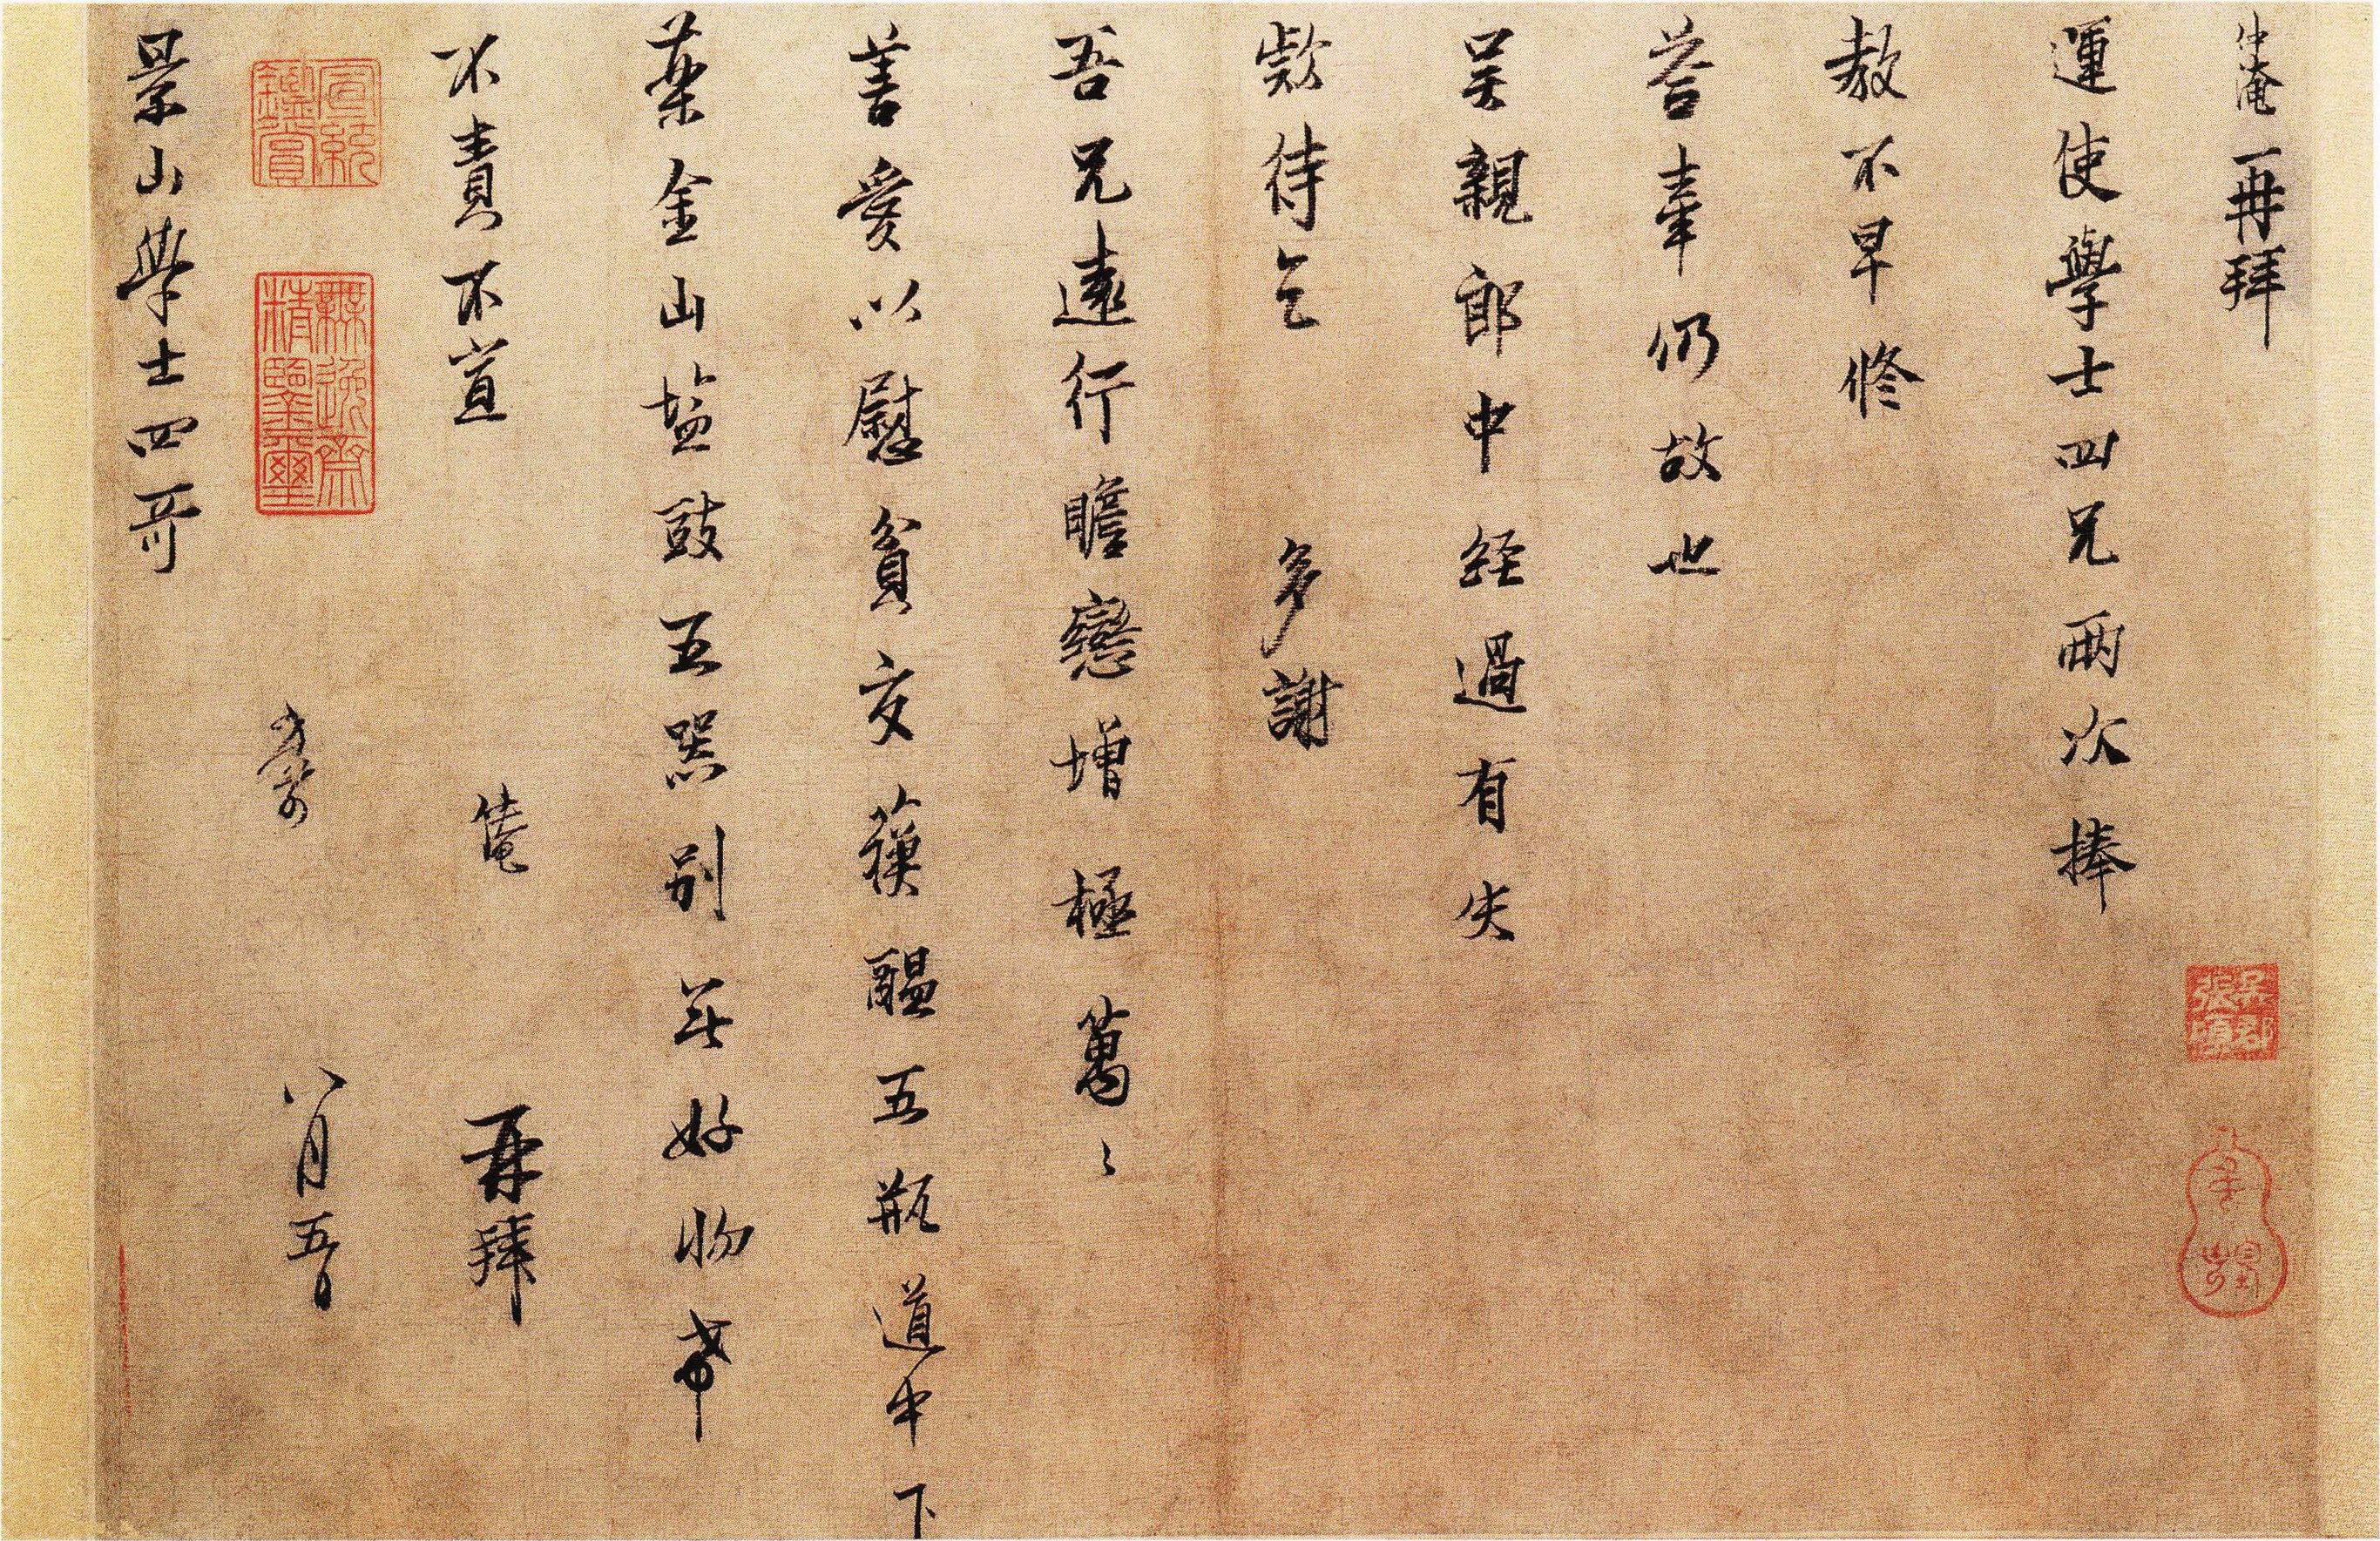 仲淹再拜
運使學士四兄兩次捧
教不早修
荅牽仍故也
吳親郎中經過有失
欵待乞 多謝
吾兄遠行瞻戀增極萬〻
善愛以慰貧交蘓醖五瓶道中下
藥金山塩豉五器別無好物希
不責不宣 淹 再拜
八月五日
景山學士四哥
宣統鑑賞
無逸齋精鑒璽
吳郡